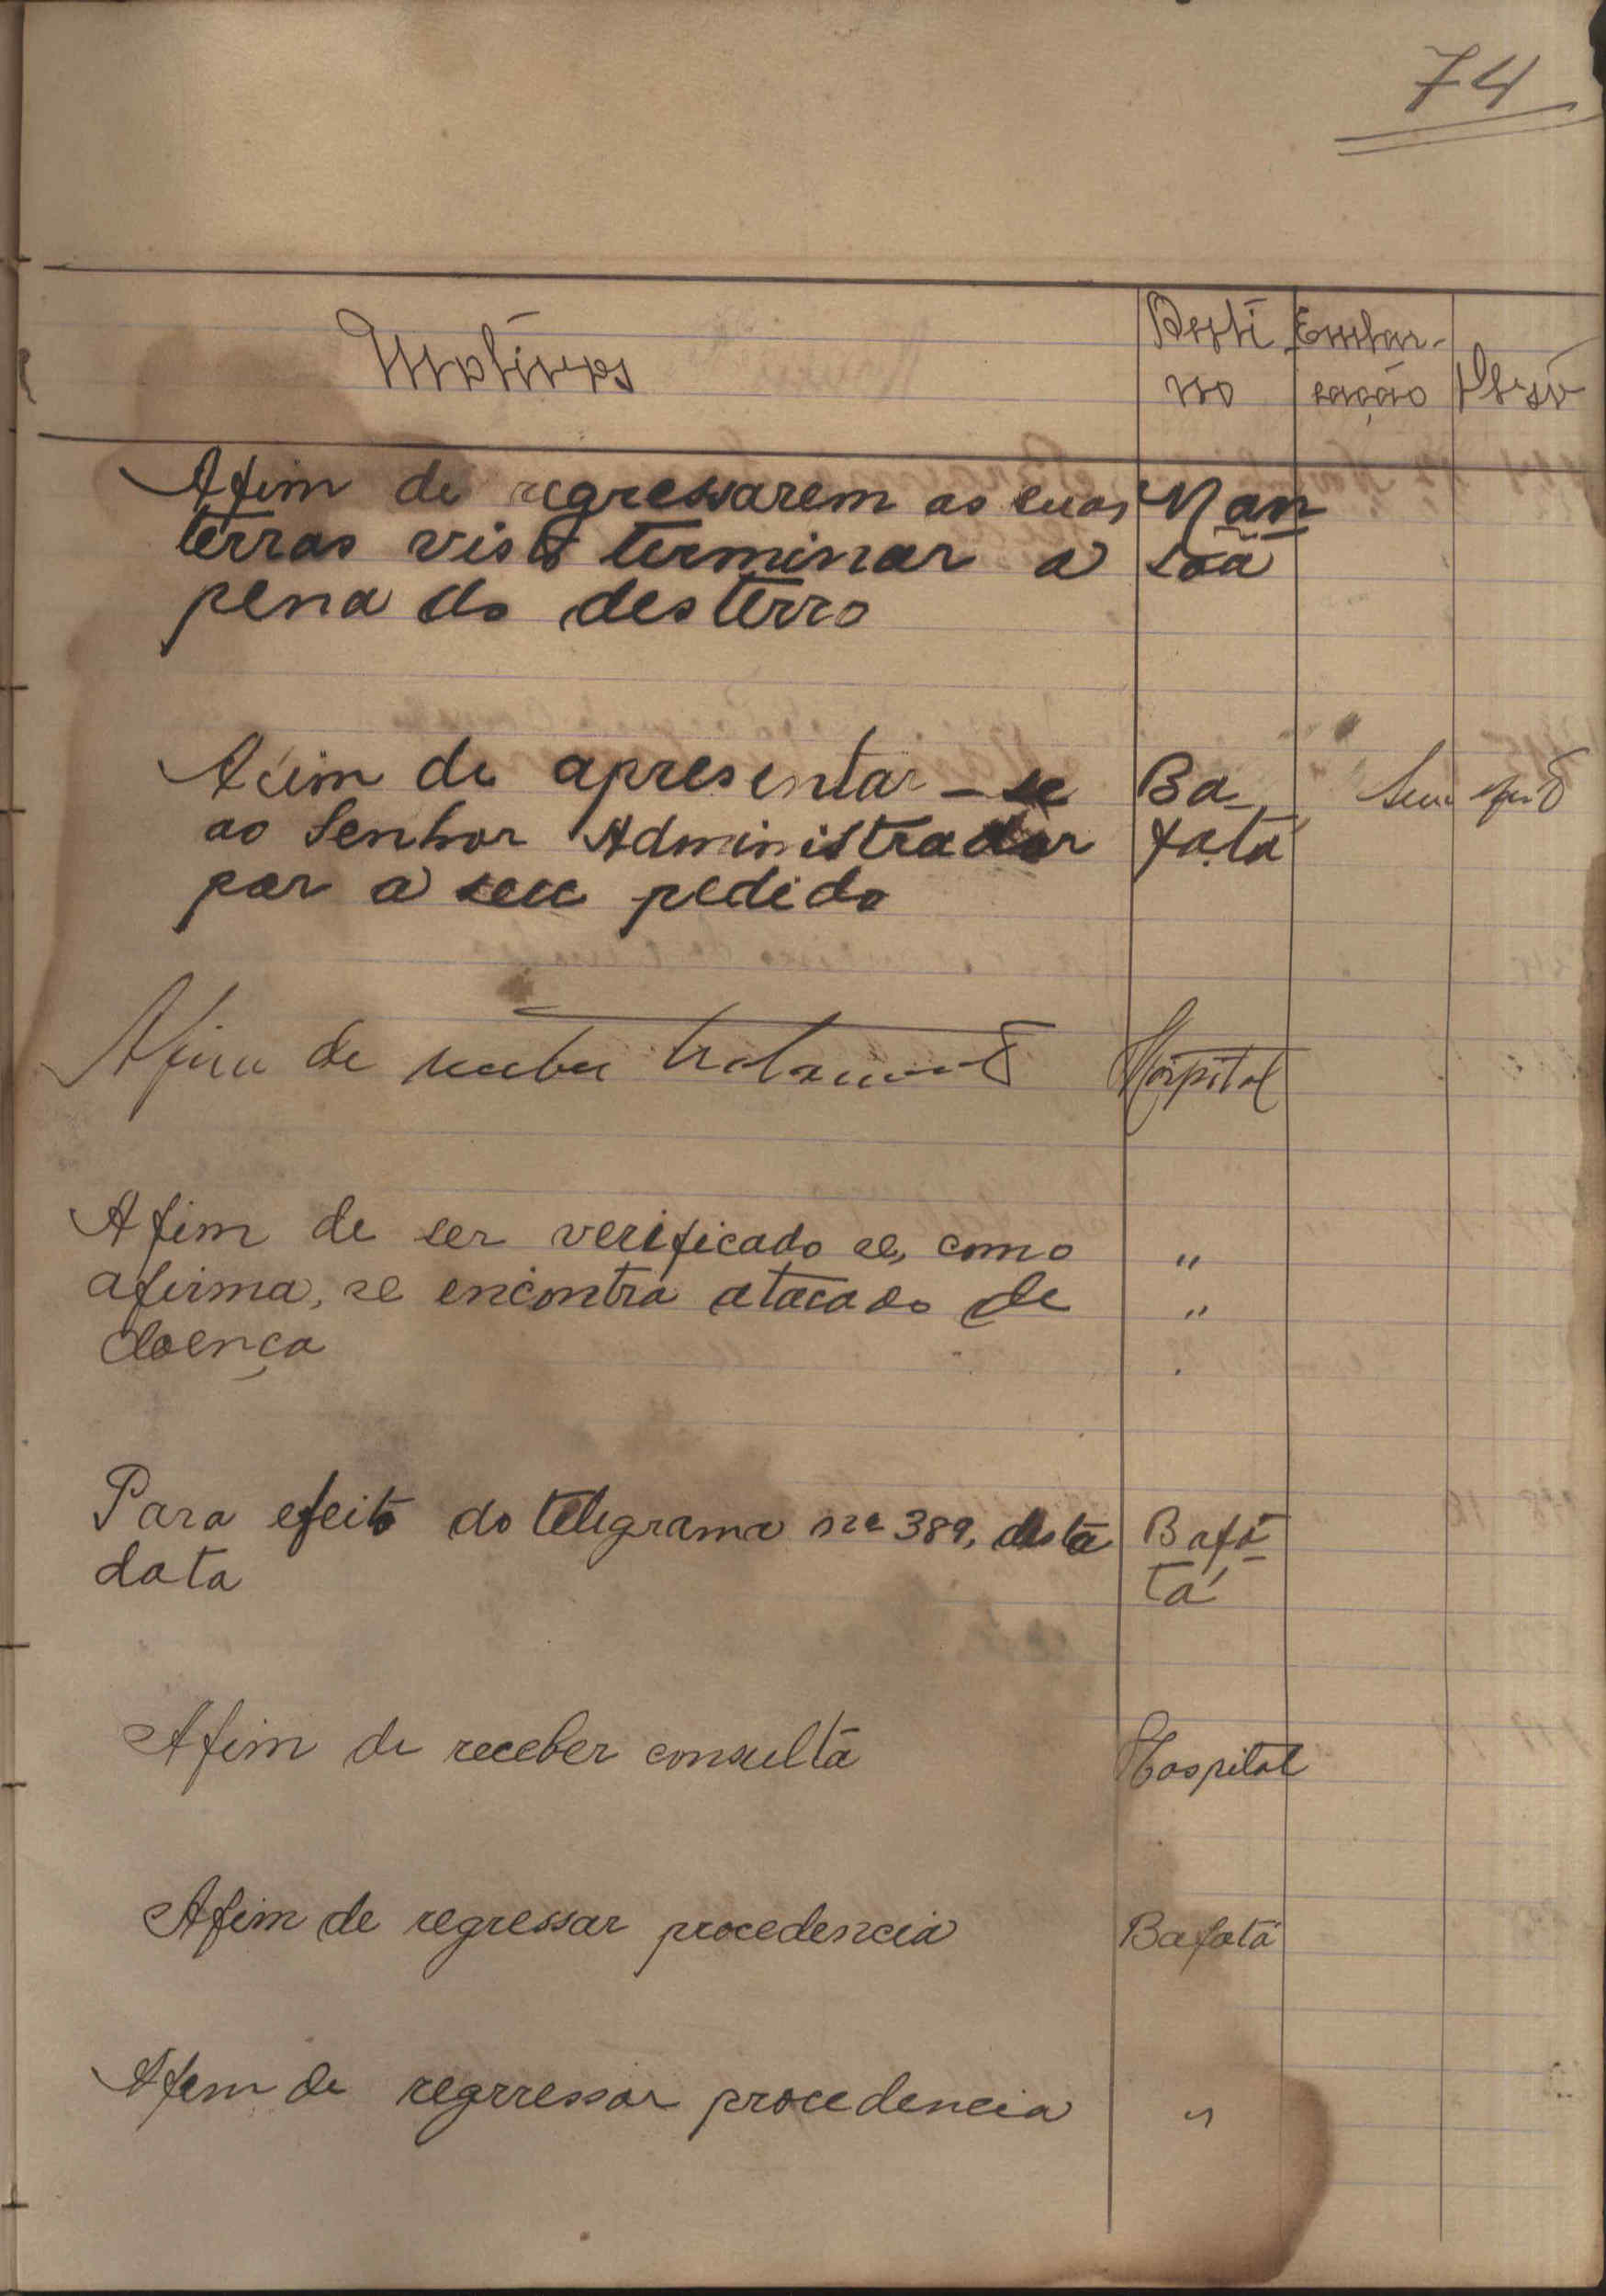 74
Motivos
Desti
no
Embar-
cação
Obsv
Afim de regressarem as suas
terras visto terminar a
pena do desterro
Man
soã
Afim de apresentar-se
ao Senhor Administrador
por a seu pedido
Ba-
fatá
Sem
Afim de receber tratamento
Hospital
Afim de ser verificado se, como
afirma, se encontra atacado de
doença
"
"
Para efeito do telegrama nº 389, desta
data
Bafa-
tá
Afim de receber consulta
Hospital
Afim de regressar procedencia
Bafatá
Afem de regrressar procedencia
"